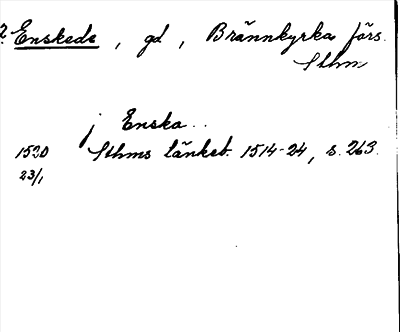 ? Enskede, gd, Brännkyrka förs.
Sthm
j Enska..
1520 Sthms tänkeb. 1514-24, s. 263.
23/1